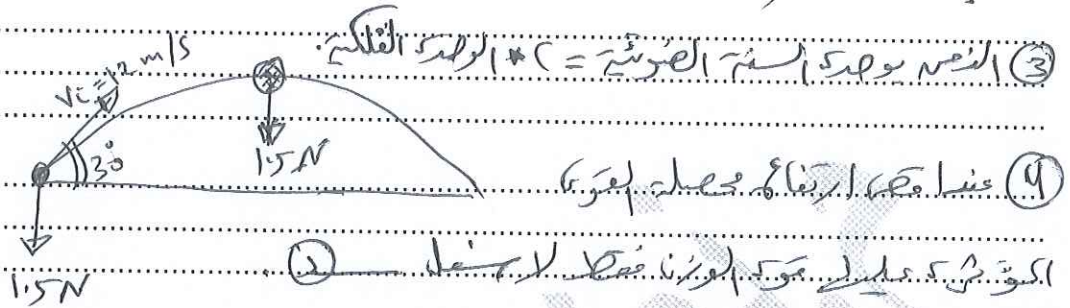 ③ الزمن بوحدة السنة الضوئية = ) * الوحدة الفلكية.
Vi = 12 m/s
30°
1.5N
④ عند أقصى ارتفاع محصلة القوى
التي تؤثر عليه هي قوة الوزن فقط لأسفل
1.5N